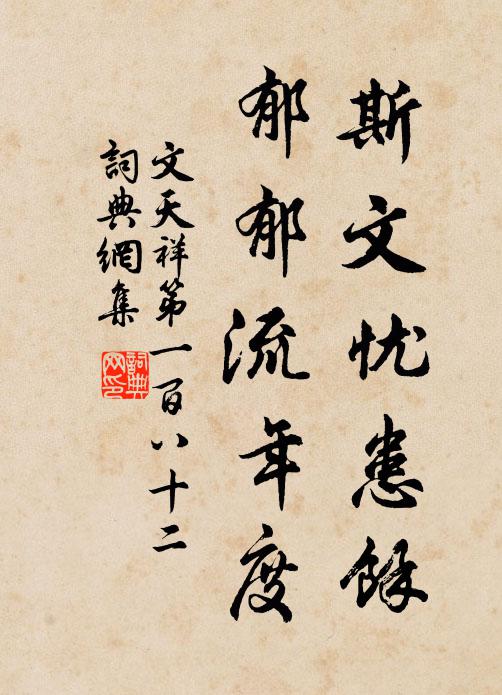 斯文忧患餘
郁郁流年度
文天祥第一百八十二
詞典網集
詞典网印